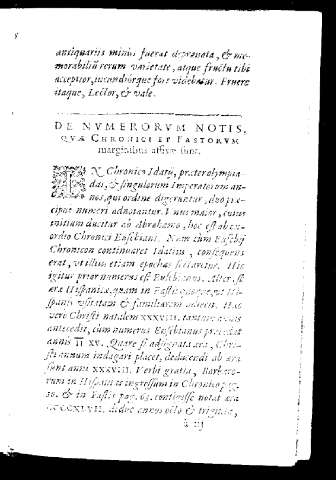 antiquariis mihi fuerat deprompta, & me-
morabiliū rerum varietate, atque fructu tibi
acceptior, iucundiorque fore videbatur. Fruere
itaque, Lector, & vale.
DE NVMERORVM NOTIS,
QVÆ CHRONICI ET FASTORVM
marginibus affixæ sunt.
IN Chronico Idatij, præter olympia
das, & singulorum Imperatorum an-
nos, qui ordine digeruntur, duo præ-
cipue numeri adnotantur. Vnus maior, cuius
initium ducitur ab Abrahamo, hoc est ab ex-
ordio Chronici Eusebiani. Nam cùm Eusebij
Chronicon continuaret Idatius, consequens
erat, vt illius etiam epochas sectaretur. Hic
igitur prior numerus est Eusebianus. Alter, est
æra Hispanica, quam in Fastis quoque, vt His-
panis vsitatam & familiarem adiecit. Hæc
verò Christi natalem XXXVIII. annis
antecedit, cùm numerus Eusebianus præcedat
annis XV. Quare si adsignata æra, Chri-
sti annum indagari placet, deducendi ab æra
sunt anni XXXVIII. Verbi gratia, Barbaro-
rum in Hispanias ingressum in Chronico pag.
& in Fastis pag. 63. contigisse notat æra
deduc annos octo & triginta,
ã iij